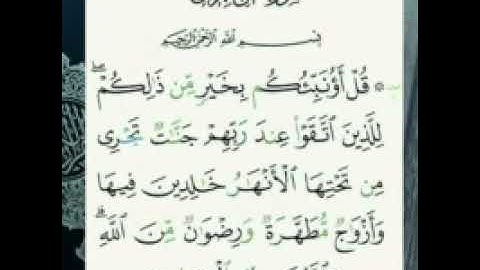 بِسْمِ ٱللَّهِ ٱلرَّحْمَٰنِ ٱلرَّحِيمِ
۞ قُلْ أَؤُنَبِّئُكُم بِخَيْرٍ مِّن ذَٰلِكُمْ ۖ
لِلَّذِينَ ٱتَّقَوْا۟ عِندَ رَبِّهِمْ جَنَّٰتٌ تَجْرِى
مِن تَحْتِهَا ٱلْأَنْهَٰرُ خَٰلِدِينَ فِيهَا
وَأَزْوَٰجٌ مُّطَهَّرَةٌ وَرِضْوَٰنٌ مِّنَ ٱللَّهِ ۗ